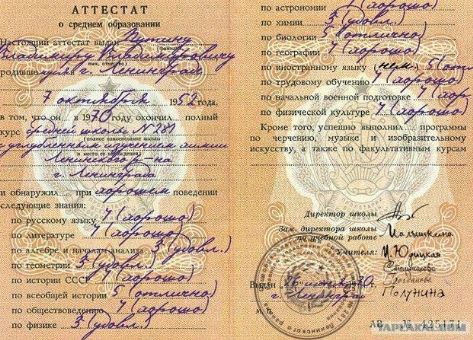 АТТЕСТАТ
о среднем образовании
Настоящий аттестат выдан Путину
Владимиру Владимировичу
родившемуся г. Ленинград
7 октября 1952 года,
в том, что он в 1970 году окончил полный
курс средней школы № 281
с углубленным изучением химии
Ленинского р-на
г. Ленинграда
и обнаружил при хорошем поведении
следующие знания:
по русскому языку 4 (хорошо)
по литературе 4 (хорошо)
по алгебре и началам анализа 3 (удовл.)
по геометрии 3 (удовл.)
по истории СССР 4 (хорошо)
по всеобщей истории 5 (отлично)
по обществоведению 4 (хорошо)
по физике 3 (удовл.)
по астрономии (хорошо)
по химии 3 (удовл.)
по биологии 5 (отлично)
по географии 4 (хорошо)
по иностранному языку (нем.) 5 (отл
по трудовому обучению 4 (хорошо)
по начальной военной подготовке 4 (хорошо)
по физической культуре 4 (хорошо)
Кроме того, успешно выполнил программы
по черчению, музыке и изобразительному
искусству, а также по факультативным курсам
Директор школы
Зам. директора школы
по учебной работе
Учителя:
Полунина
Выдан 1970 г.
г. Ленинград
YAPLAKAL.COM